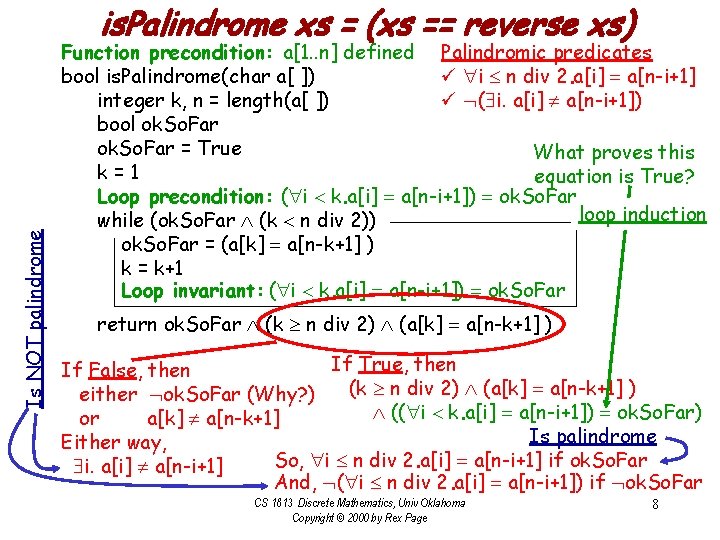 is.Palindrome xs = (xs == reverse xs)
Function precondition: a[1..n] defined
bool is.Palindrome(char a[ ])
integer k, n = length(a[ ])
bool ok.So.Far
ok.So.Far = True
k = 1
Palindromic predicates
✓ ∀i ≤ n div 2.a[i] = a[n-i+1]
✓ ¬(∃i. a[i] ≠ a[n-i+1])
What proves this
equation is True?
Loop precondition: (∀i < k.a[i] = a[n-i+1]) = ok.So.Far
loop induction
while (ok.So.Far ∧ (k < n div 2))
ok.So.Far = (a[k] = a[n-k+1] )
k = k+1
Loop invariant: (∀i < k.a[i] = a[n-i+1]) = ok.So.Far
return ok.So.Far ∧ (k ≥ n div 2) ∧ (a[k] = a[n-k+1] )
Is NOT palindrome
If False, then
either ¬ok.So.Far (Why?)
or a[k] ≠ a[n-k+1]
Either way,
∃i. a[i] ≠ a[n-i+1]
If True, then
(k ≥ n div 2) ∧ (a[k] = a[n-k+1] )
∧ ((∀i < k.a[i] = a[n-i+1]) = ok.So.Far)
Is palindrome
So, ∀i ≤ n div 2.a[i] = a[n-i+1] if ok.So.Far
And, ¬(∀i ≤ n div 2.a[i] = a[n-i+1]) if ¬ok.So.Far
CS 1813 Discrete Mathematics, Univ Oklahoma
Copyright © 2000 by Rex Page
8